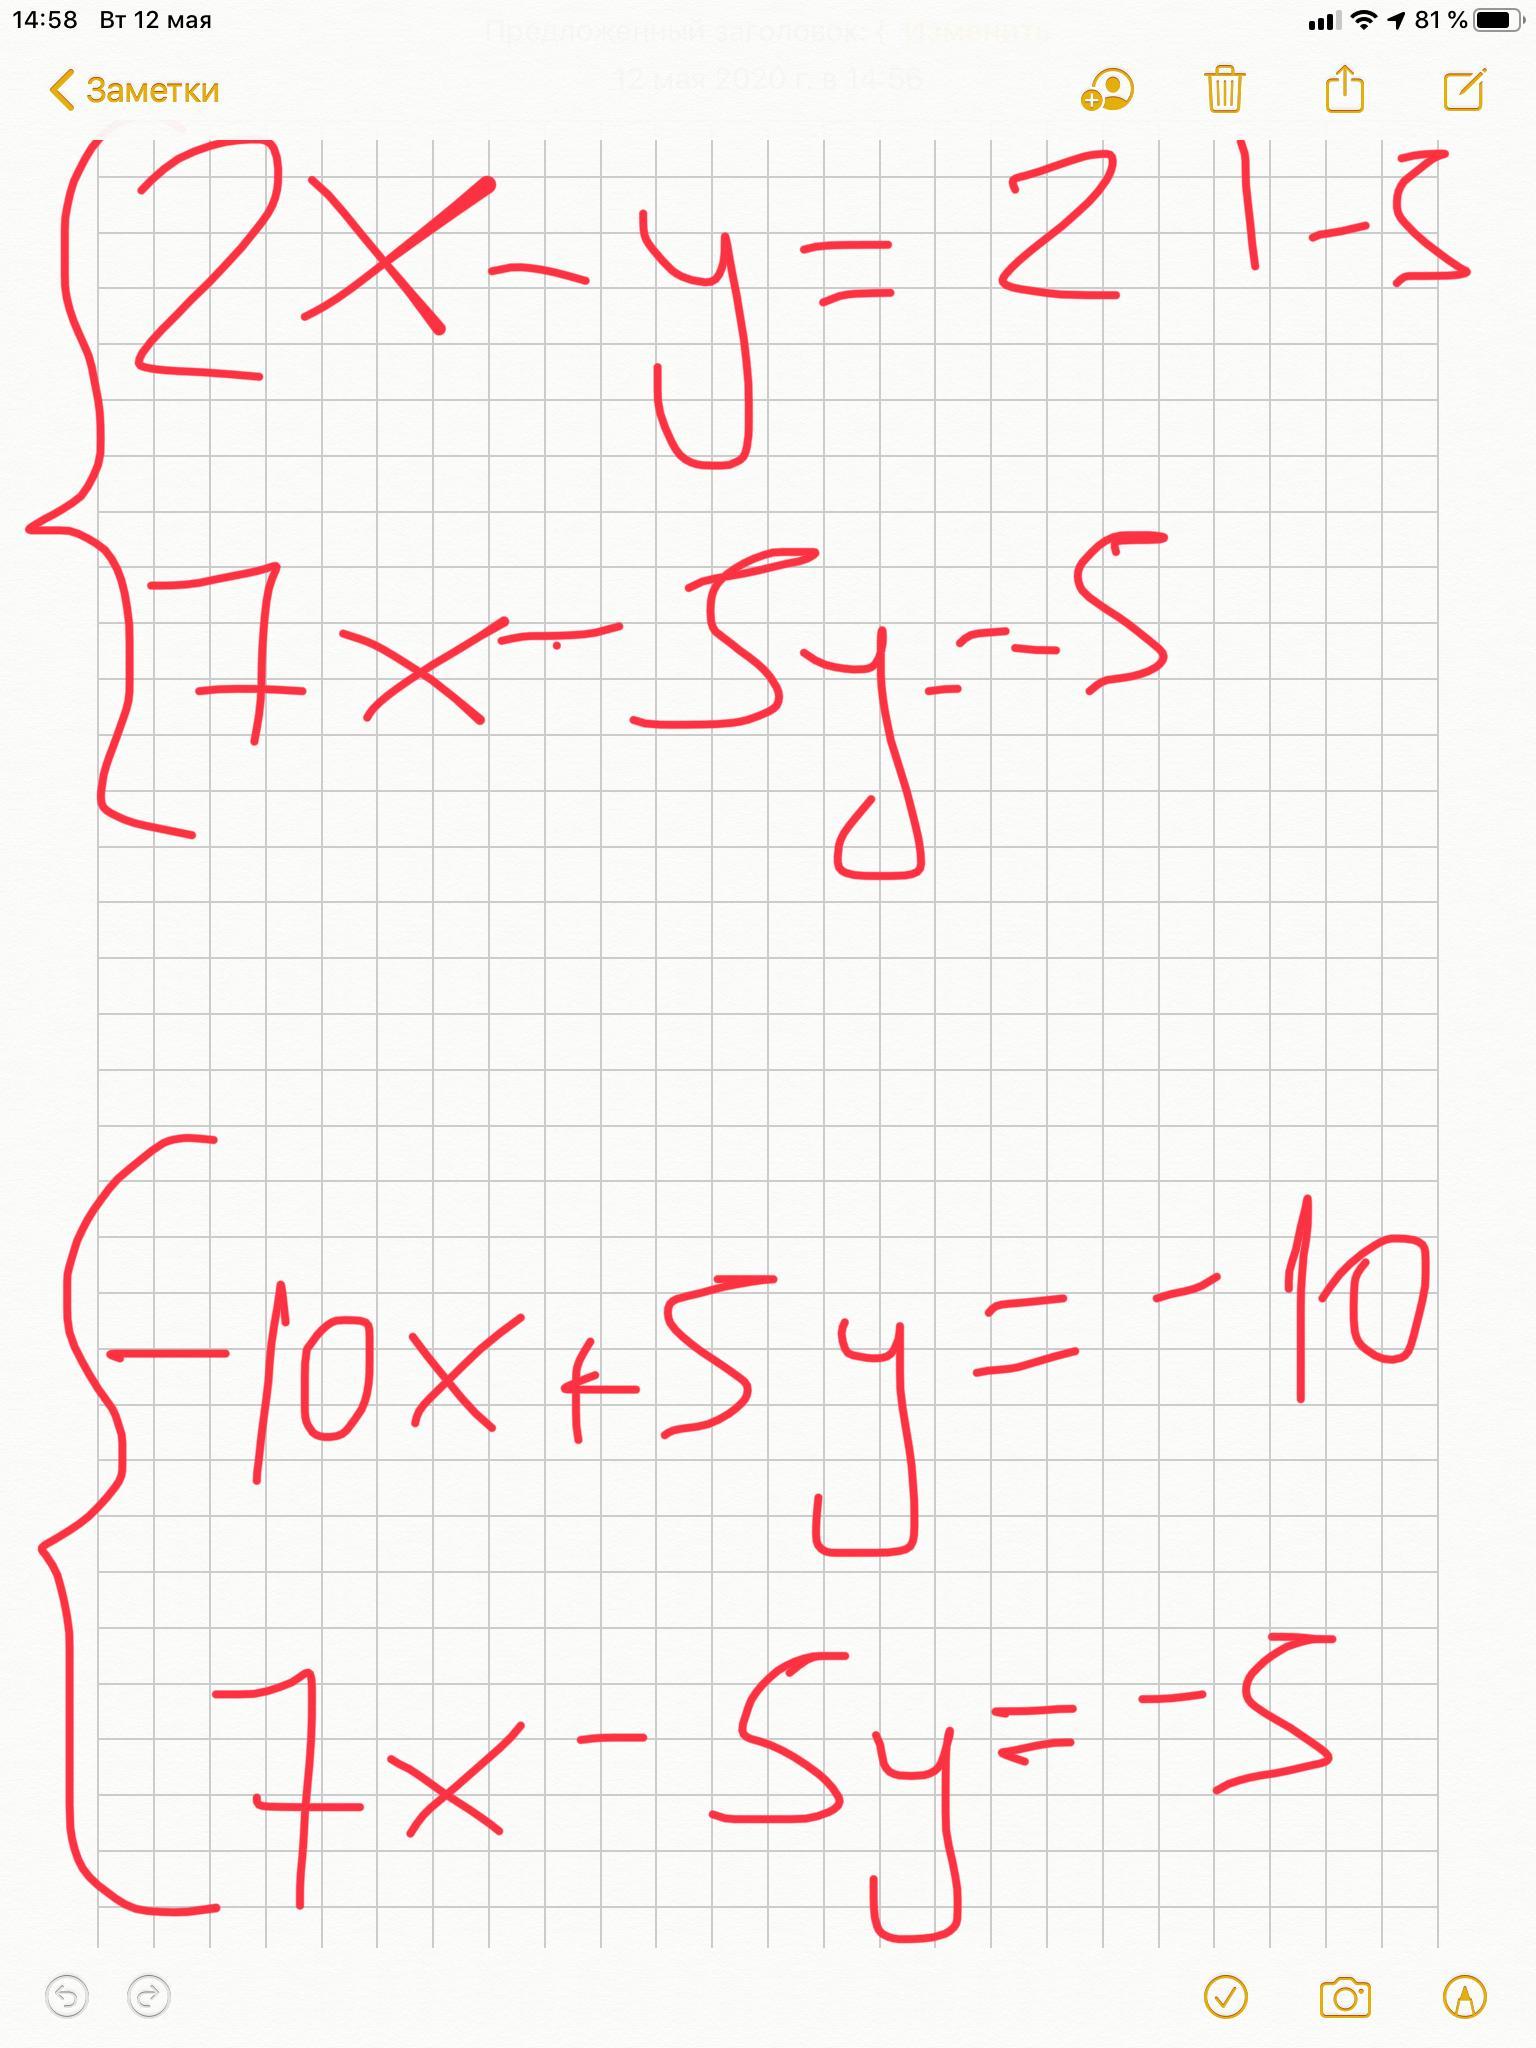 14:58 Вт 12 мая 81 %
Предложенный заголовок: Изменить
Заметки
12 мая 2020 г. в 14:5
2x - y = 2 | -5
7x - 5y = -5
-10x + 5y = -10
7x - 5y = -5